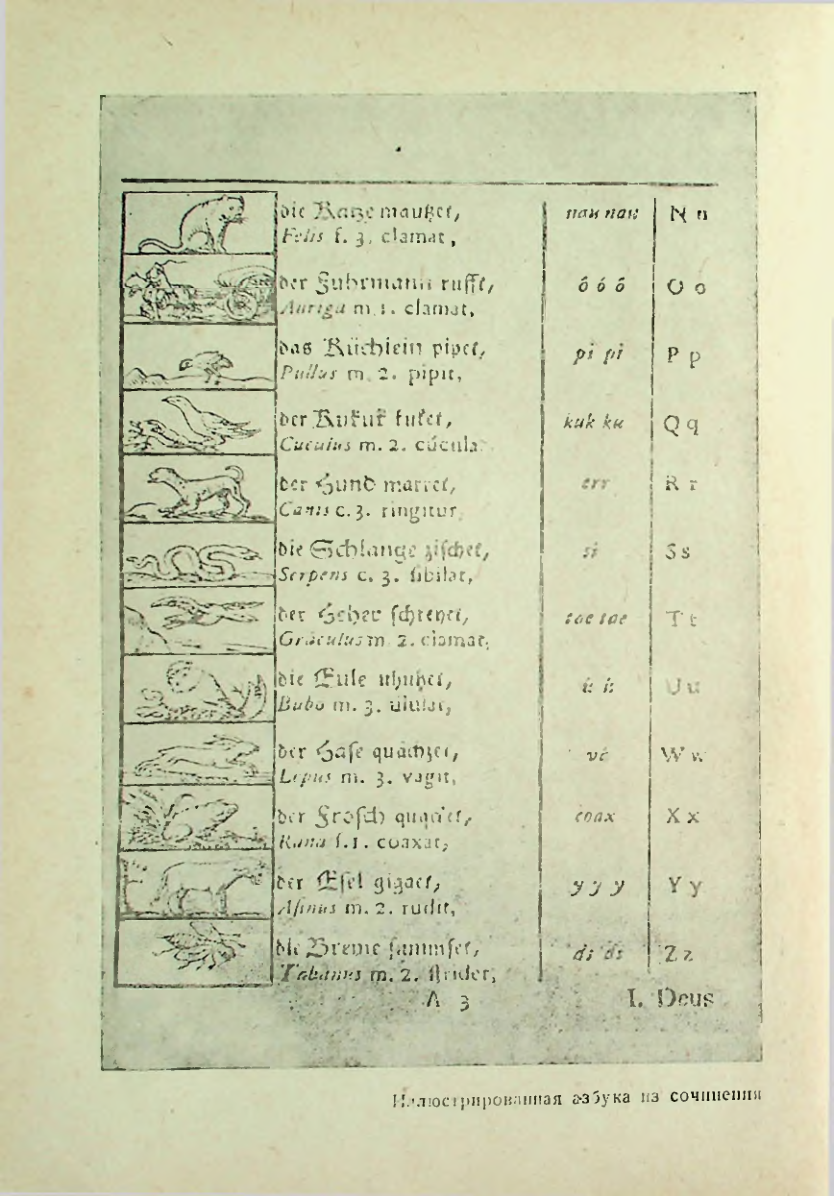 die Katze mautzet, nau nau N n
Felis f. 3. clamat,
der Fuhrmann rufft, ô ó ô O o
Auriga m. 1. clamat,
das Küchlein pipet, pi pi P p
Pullus m. 2. pipit,
der Kukuk kuket, kuk ku Q q
Cuculus m. 2. cúculat
der Hund marret, err R r
Canis c. 3. ringitur,
die Schlange zischet, si S s
Serpens c. 3. sibilat,
der Heher schreyet, tae tae T t
Graculus m. 2. clamat,
die Eule uhuhet, ú ú U u
Bubo m. 3. ululat,
der Hase quächzet, vé W w
Lepus m. 3. vagit,
der Frosch quaket, coax X x
Rana f. 1. coaxat,
der Esel gigaet, y y y Y y
Asinus m. 2. rudit,
die Breme summset, ds ds Z z
Tabanus m. 2. stridet,
A 3 I. Deus
Иллюстрированная азбука из сочинения